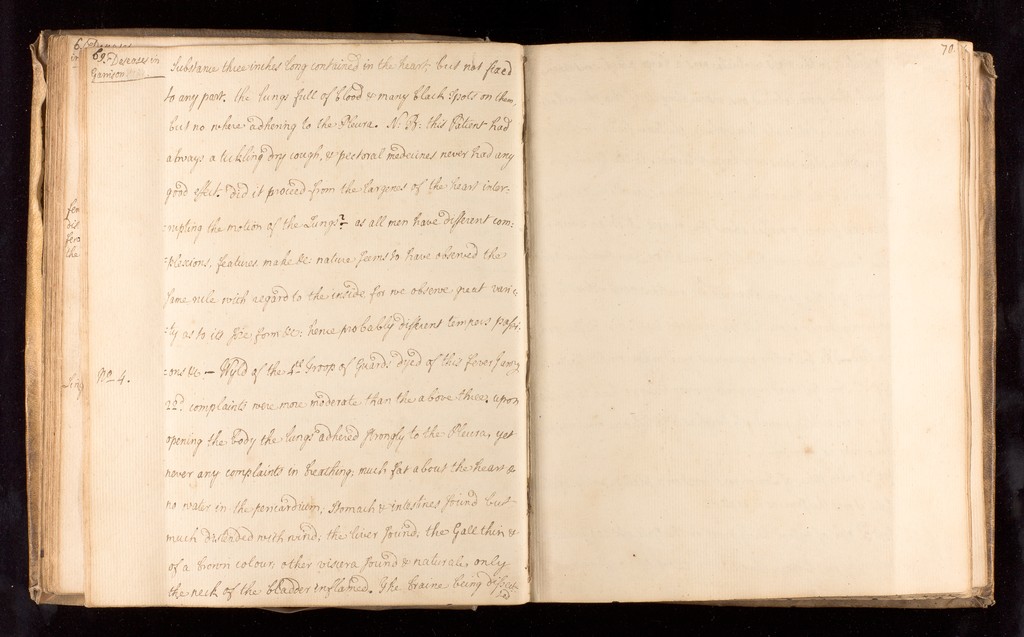 69. Diseases in
Garrison
Substance three inches long contained in the heart, but not fixed
to any part. the lungs full of blood & many black spots on them,
but no where adhering to the Pleura. N: B: this Patient had
always a tickling dry cough, & pectoral medicines never had any
good effect. did it proceed from the largenes of the heart inter:
:rupting the motion of the Lungs? as all men have different com:
:plexions, features, make &c: nature seems to have observed the
same rule with regard to the inside for we observe great varie:
:ty as to its size, form &c: hence probably different tempers passi:
:ons &c — Wyld of the 4th troop of Guards dyed of this fever Janry
No 4.
22d. complaints were more moderate than the above three. upon
opening the body the lungs adhered strongly to the Pleura, yet
never any complaints in breathing; much fat about the heart &
no water in the pericardium; Stomach & intestines sound but
much distended with wind; the liver sound; the Gall thin &
of a brown colour; other viscera sound & natural; only
the neck of the bladder inflamed. The braine being dissect:
:ed
70.